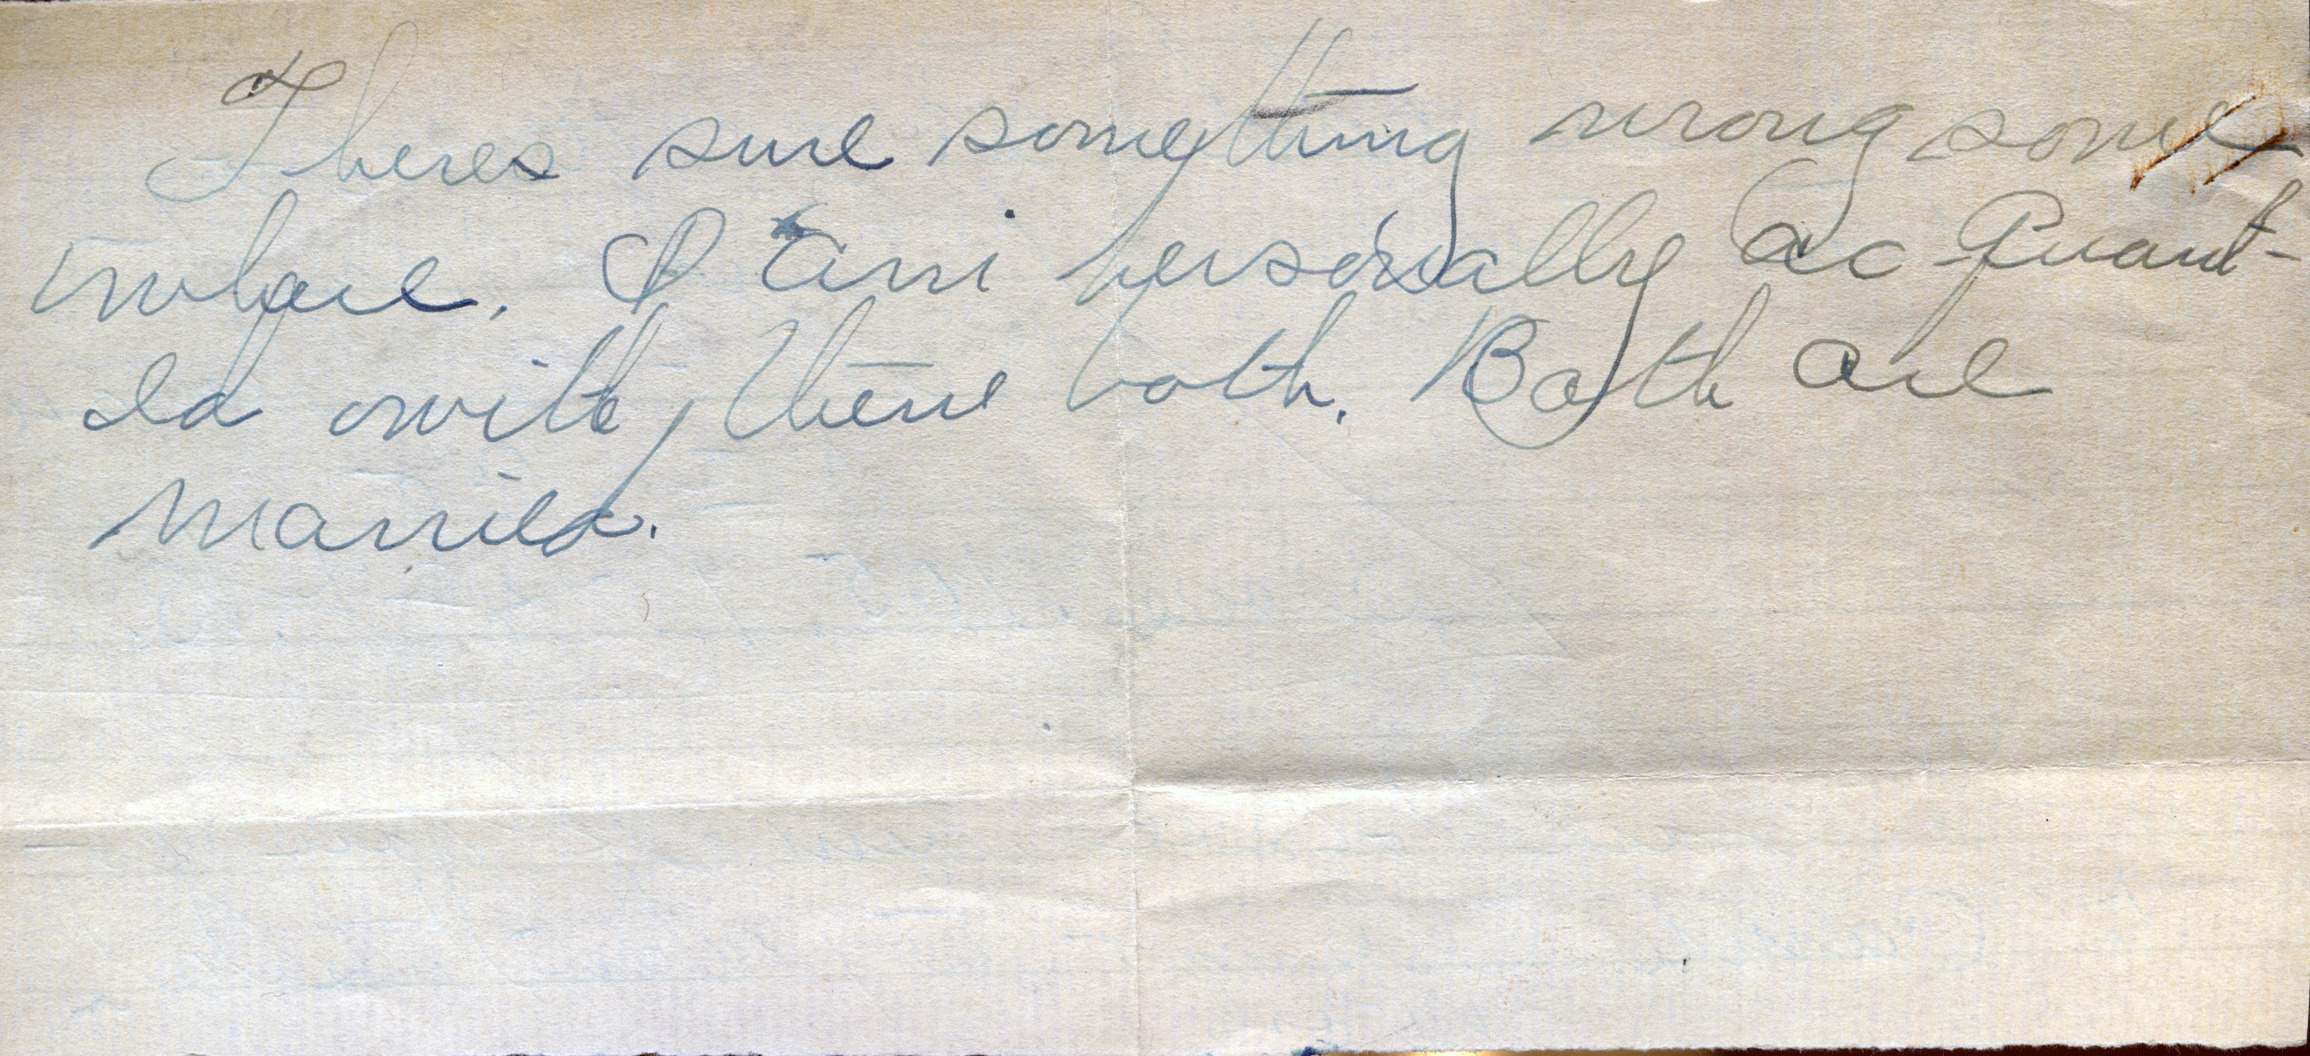 Theres sure something wrong some
where. I am personally ac-quant-
ed with them both. Both are
married.